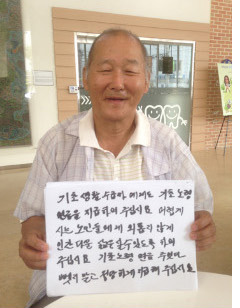 기초생활수급자 에게도 기초노령
연금을 지급하여 주십시요 어렵게
사는 노인들에게 외롭지 않게
인간다운 삶을 살 수 있도록 하여
주십시요 기초노령 연금 주었다
뺏지 말고 정당하게 지급해 주십시요